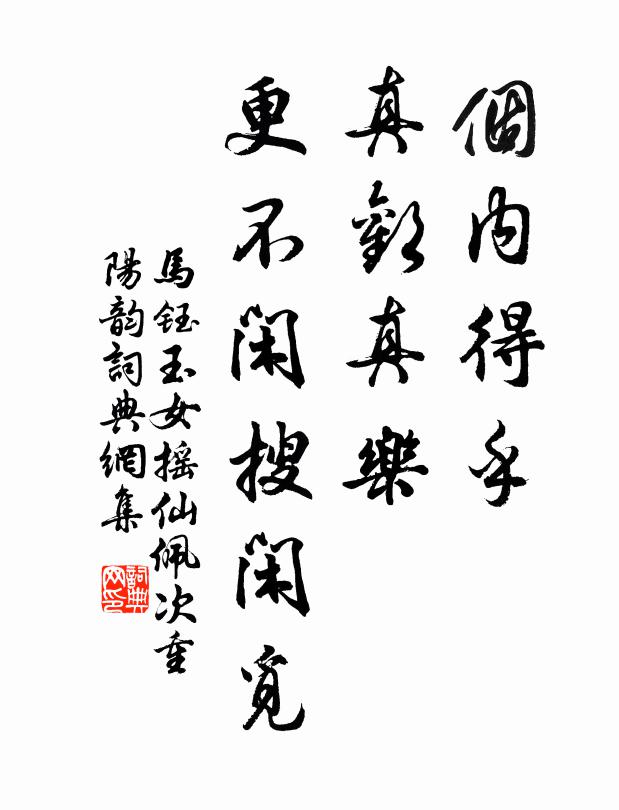 個内得乎
真歡真樂
更不閑搜閑覓
馬鈺玉女摇仙佩次重
陽韵詞典網集
詞典网印